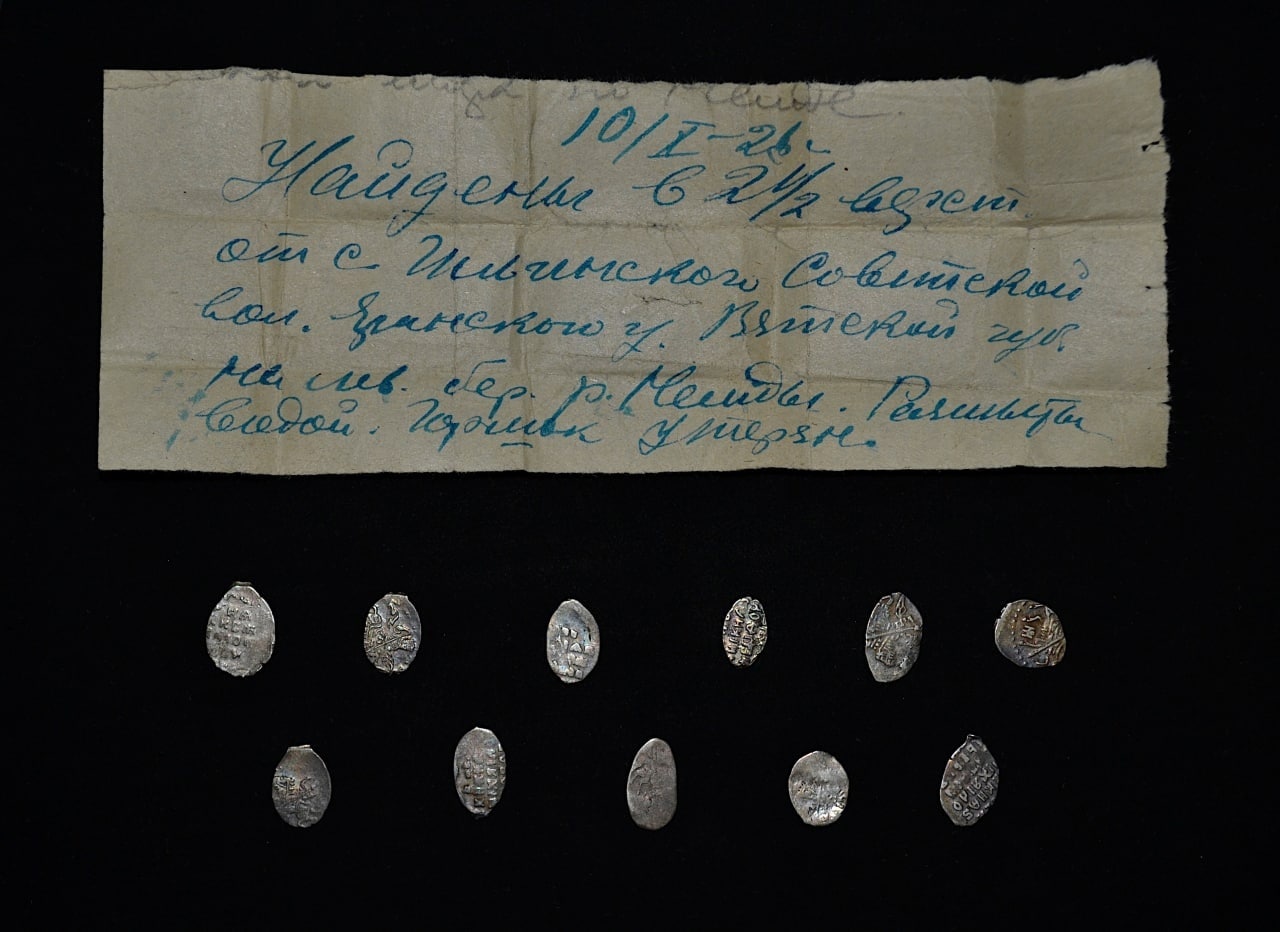 по Немде.
10/I-26.
Найдены в 2 1/2 верст.
от с. Ильинского Советской
вол. Яранского у. Вятской губ.
на лев. бер. р. Немды. Размыты
водой. Горшок утерян.